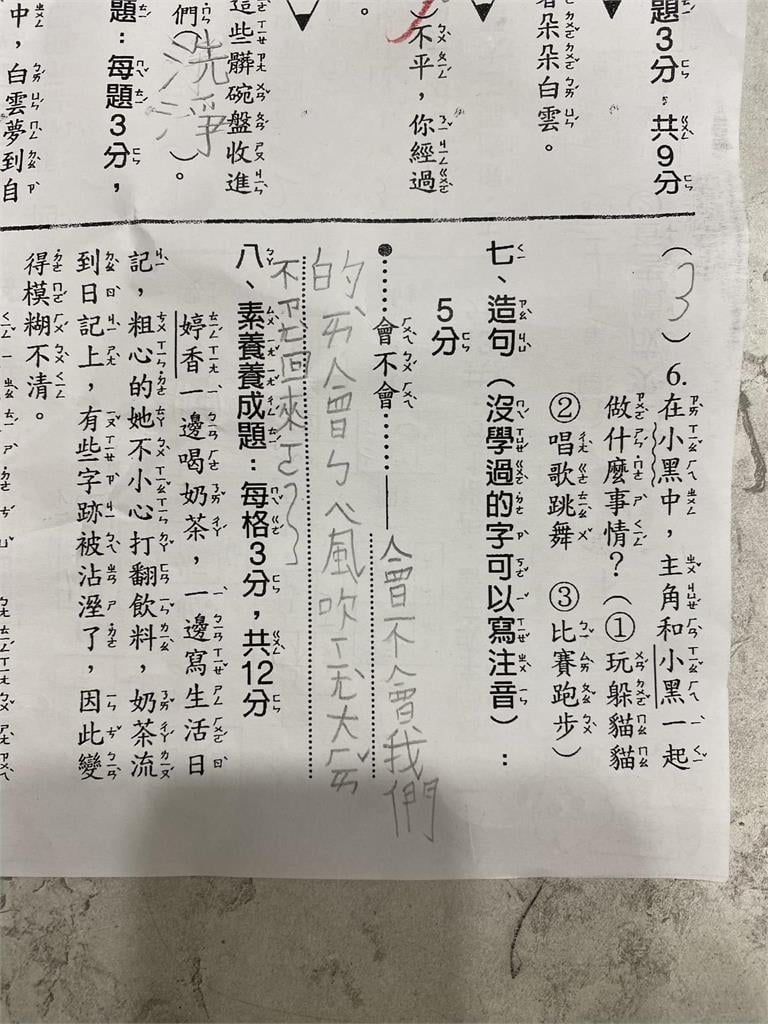 題3分，共9分
著朵朵白雲。
）不平，你經過
。
這些髒碗盤收進
們（洗淨）。
題：每題3分，
中，白雲夢到自
（3）6.在小黑中，主角和小黑一起
做什麼事情？（①玩躲貓貓
②唱歌跳舞 ③比賽跑步）
七、造句（沒學過的字可以寫注音）：
5分
●……會不會……——會不會我們
的ㄞ會ㄅㄟ風吹ㄒㄤ大ㄏㄞˇ
不 回來
八、素養養成題：每格3分，共12分
婷香一邊喝奶茶，一邊寫生活日
記，粗心的她不小心打翻飲料，奶茶流
到日記上，有些字跡被沾溼了，因此變
得模糊不清。